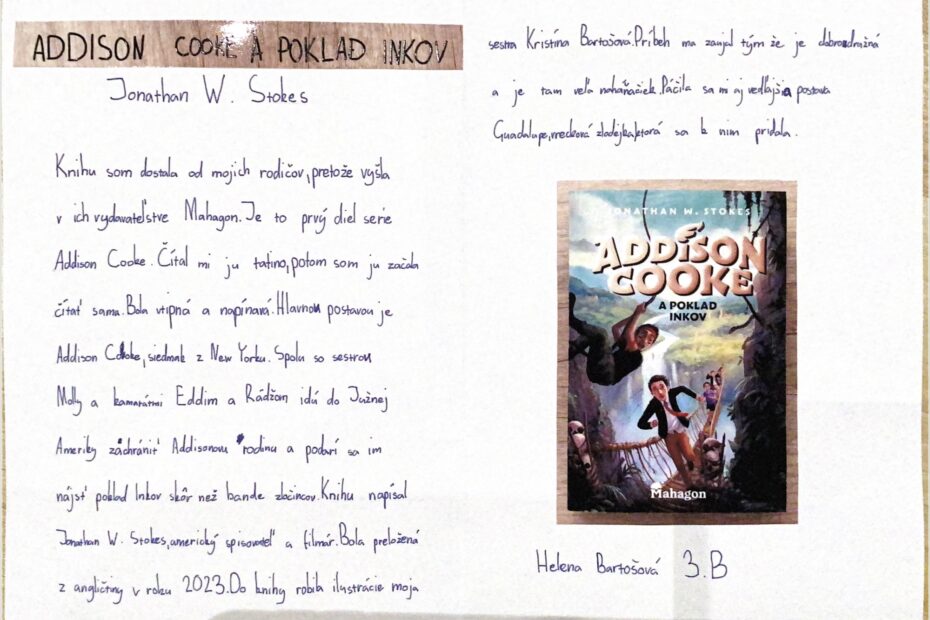 ADDISON COOKE A POKLAD INKOV
Jonathan W. Stokes
Knihu som dostala od mojich rodičov, pretože vyšla
v ich vydavateľstve Mahagon. Je to prvý diel serie
Addison Cooke. Čítal mi ju tatino, potom som ju začala
čítať sama. Bola vtipná a napínavá. Hlavnou postavou je
Addison Cooke, siedmak z New Yorku. Spolu so sestrou
Molly a kamarátmi Eddim a Rádžom idú do Južnej
Ameriky záchrániť Addisonovu rodinu a podarí sa im
nájsť poklad Inkov skôr než bande zločincov. Knihu napísal
Jonathan W. Stokes, americký spisovateľ a filmár. Bola preložená
z angličtiny v roku 2023. Do knihy robila ilustrácie moja
sestra Kristína Bartošová. Príbeh ma zaujal tým že je dobrodružná
a je tam veľa naháňačiek. Páčila sa mi aj vedľajšia postava
Guadalupe, vrecková zlodejka, ktorá sa k nim pridala.
JONATHAN W. STOKES
ADDISON
COOKE
A POKLAD
INKOV
Mahagon
Helena Bartošová 3.B